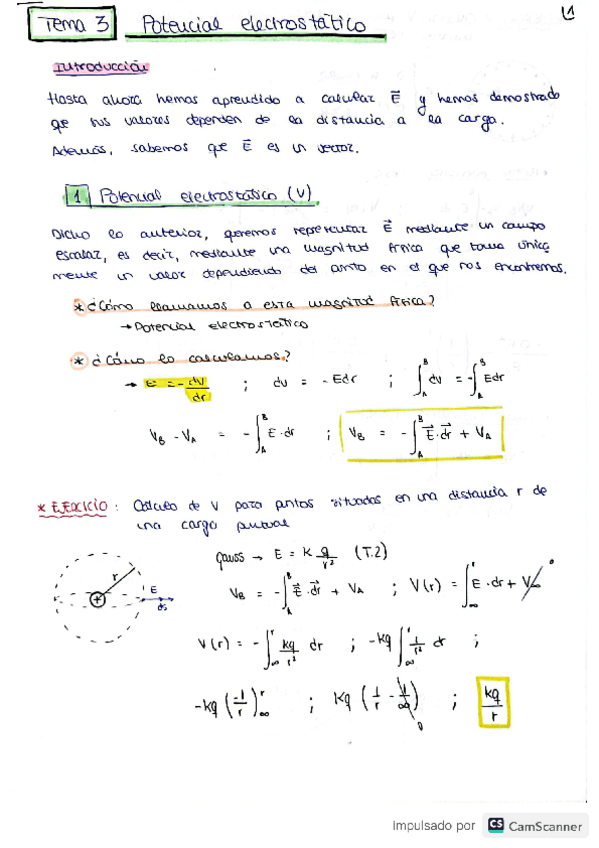 1
Tema 3 Potencial electrostático
Introducción
Hasta ahora hemos aprendido a calcular E⃗ y hemos demostrado
que sus valores dependen de la distancia a la carga.
Además, sabemos que E⃗ es un vector.
1 Potencial electrostático (V)
Dicho lo anterior, queremos representar E⃗ mediante un campo
escalar, es decir, mediante una magnitud física que toma única
mente un valor dependiendo del punto en el que nos encontremos.
* ¿Cómo llamamos a esta magnitud física?
→ Potencial electrostático
* ¿Cómo lo calculamos?
→ E = - dV/dr ; dV = - Edr ; ∫_A^B dV = -∫_A^B Edr
V_B - V_A = - ∫_A^B E·dr ; V_B = - ∫_A^B E⃗·dr⃗ + V_A
* EJERCICIO : Cálculo de V para puntos situados en una distancia r de
una carga puntual
Gauss → E = K q/r² (T.2)
r + E ds
V_B = - ∫_A^B E⃗·dr⃗ + V_A ; V(r) = ∫_∞^r E·dr + V_∞ 0
V(r) = - ∫_∞^r kq/r² dr ; -kq ∫_∞^r 1/r² dr ;
-kq (-1/r)_∞^r ; kq (1/r - 1/∞) 0 ; kq/r
Impulsado por CS CamScanner